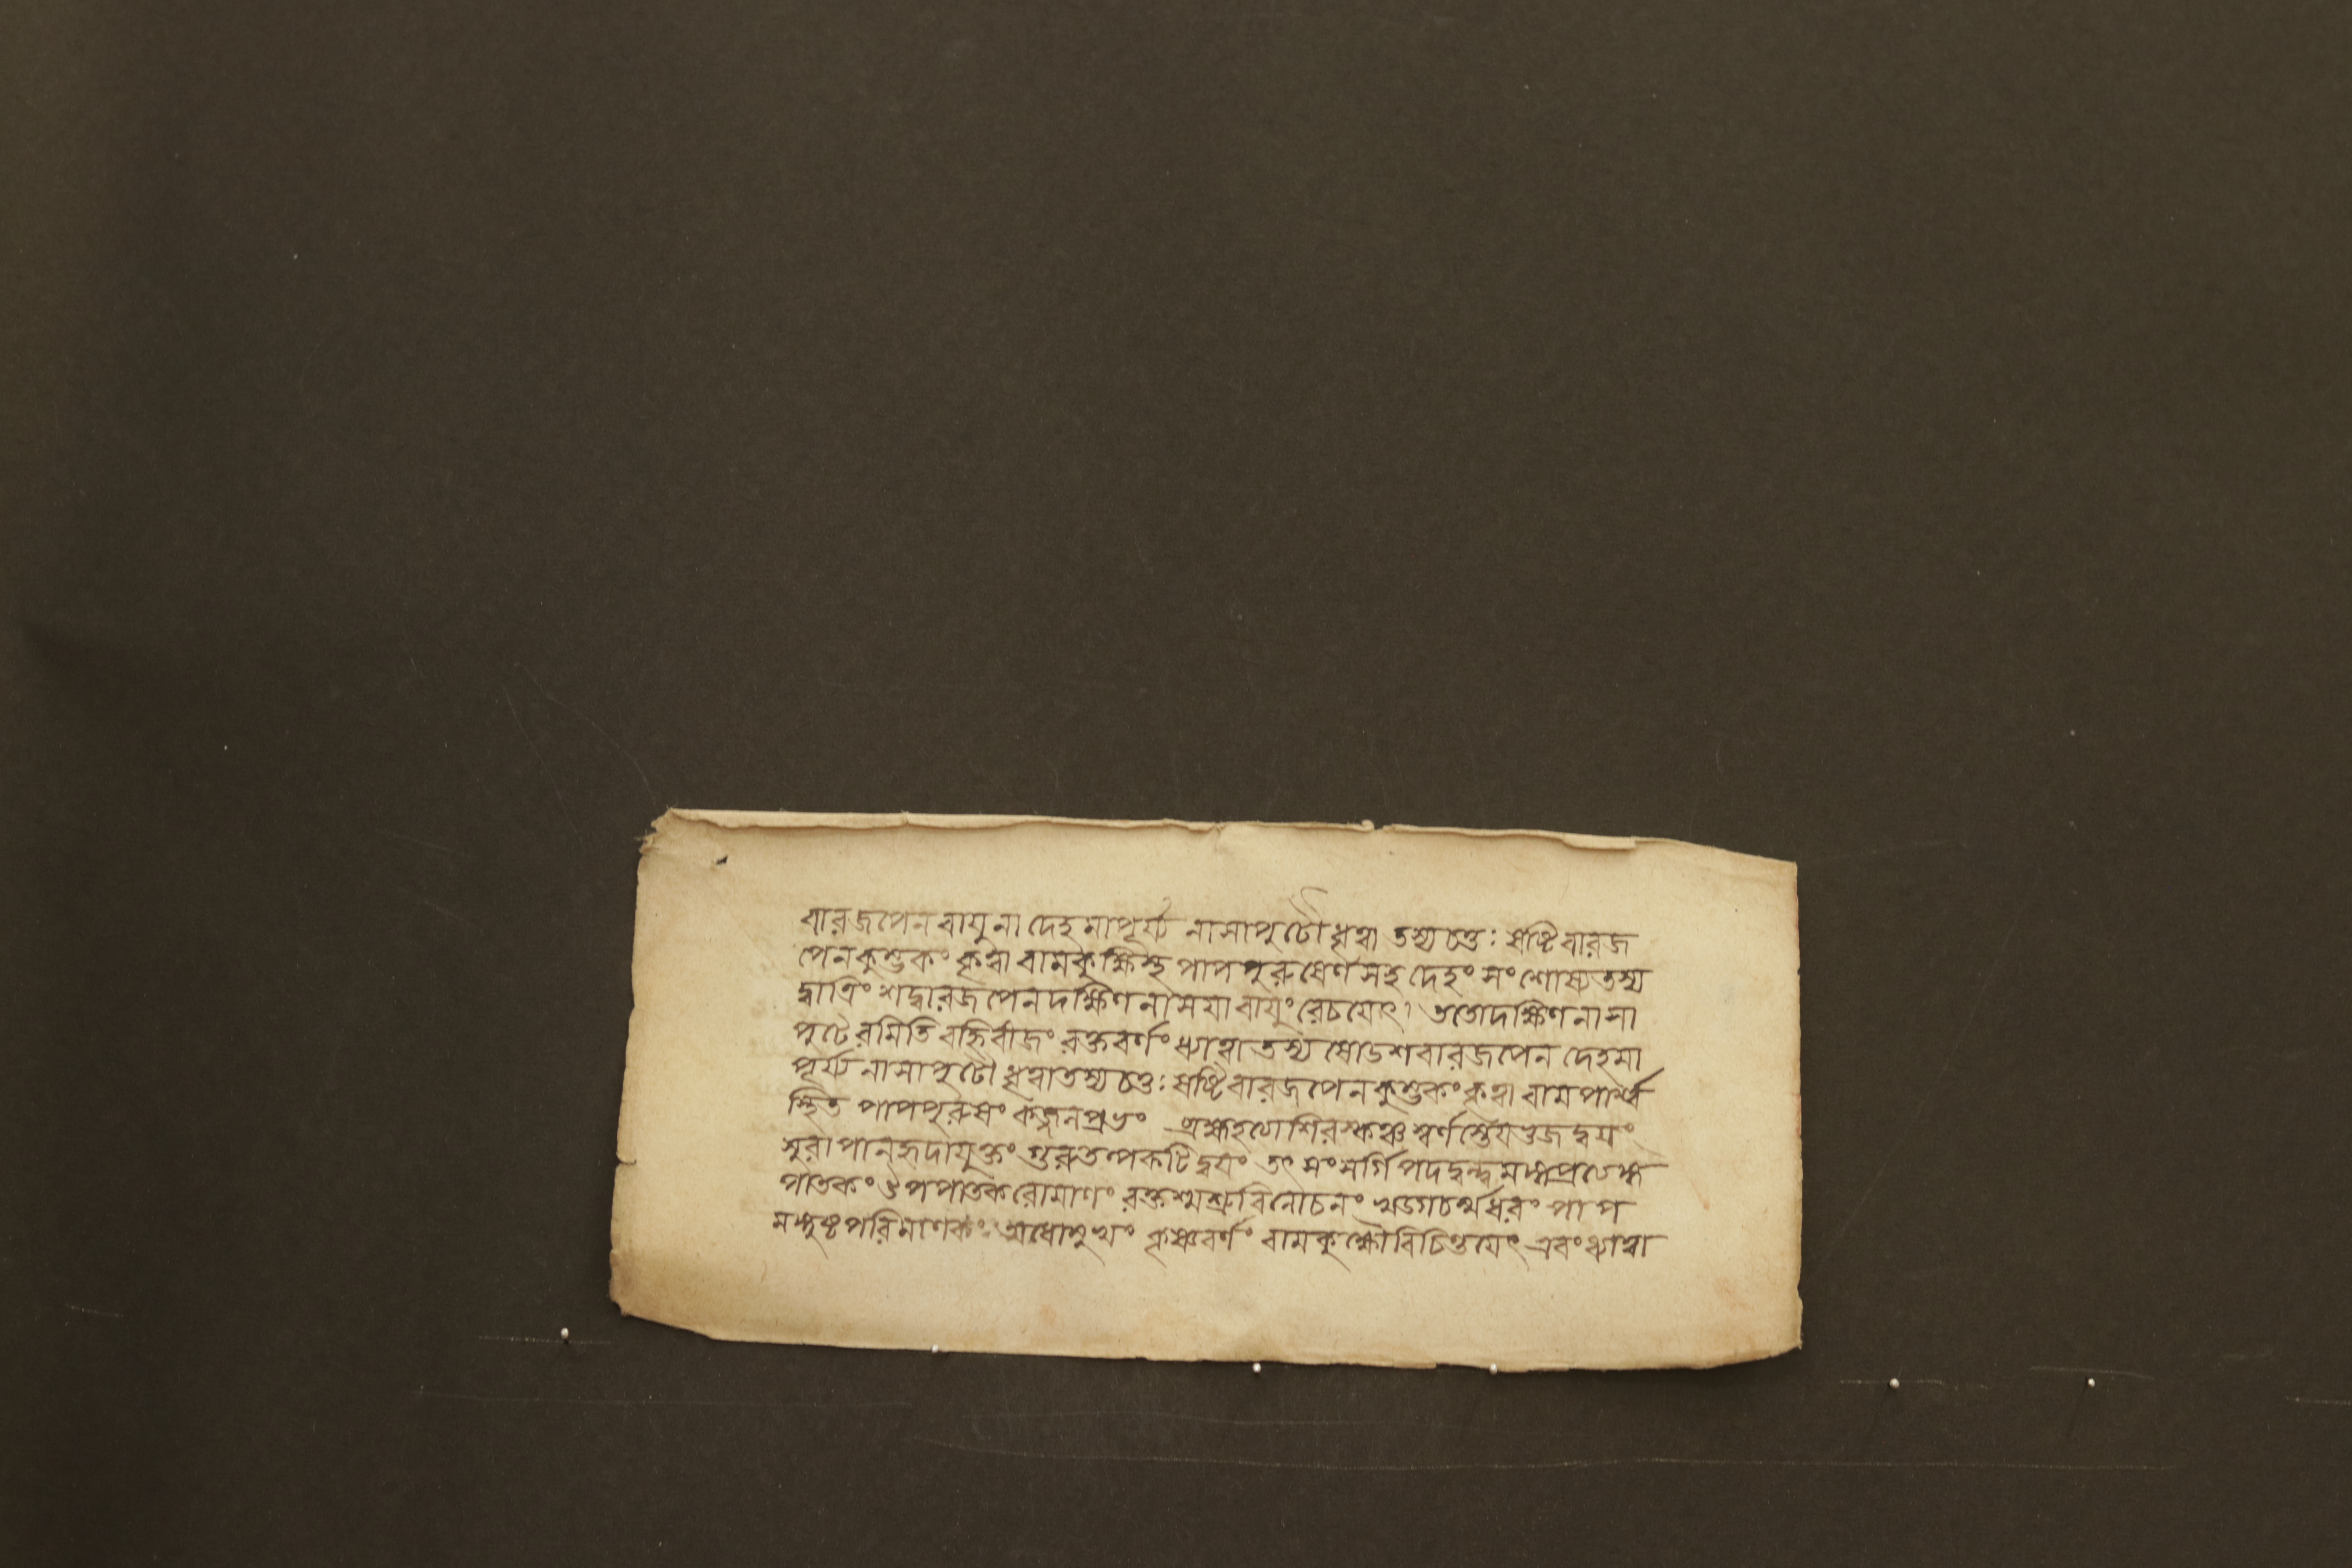 বারজপেন বায়ুনা দেহমাপূর্য্য নাসাপুটৌ ধৃত্বা তস্য চতুঃষষ্টিবারজ
পেন কুম্ভকং কৃত্বা বামকুক্ষিস্থ পাপপুরুষেণ সহ দেহং সংশোষ্য তস্য
দ্বাত্রিংশদ্বারজপেন দক্ষিণনাসয়া বায়ুং রেচয়েৎ। ততো দক্ষিণনাসা
পুটে রমিতি বহ্নিবীজং রক্তবর্ণং ধ্যাত্বা তস্য ষোডশবারজপেন দেহমা
পূর্য্য নাসাপুটৌ ধৃত্বা তস্য চতুঃষষ্টিবারজপেন কুম্ভকং কৃত্বা বামপার্শ্ব
স্থিত পাপপুরুষং কজ্জনপ্রভং ব্রহ্মহত্যাশিরস্কঞ্চ স্বর্ণস্তেয়ভুজদ্বয়ং
সুরাপানহৃদাযুক্তং গুরুতল্পকটিদ্বয়ং তৎসংসর্গিপদদ্বন্দ্বমঙ্গপ্রত্যঙ্গ
পাতকং উপপাতকরোমাণং রক্তশ্মশ্রুবিলোচনং খড্গচর্ম্মধরং পাপ
মঙ্গুষ্ঠপরিমাণকং অধোমুখং কৃষ্ণবর্ণং বামকুক্ষৌ বিচিন্তয়েৎ এবং ধ্যাত্বা